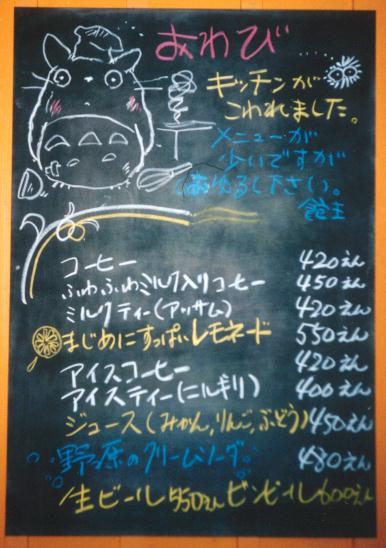 おわび
キッチンが
こわれました。
メニューが
少いですが
おゆるし下さい。
館主
コーヒー 420えん
ふわふわミルク入りコーヒー 450えん
ミルクティー(アッサム) 420えん
まじめにすっぱいレモネード 550えん
アイスコーヒー 420えん
アイスティー(ニルギリ) 400えん
ジュース(みかん,りんご,ぶどう) 450えん
野っ原のクリームソーダ 480えん
生ビール 550えん ビンビール 600えん